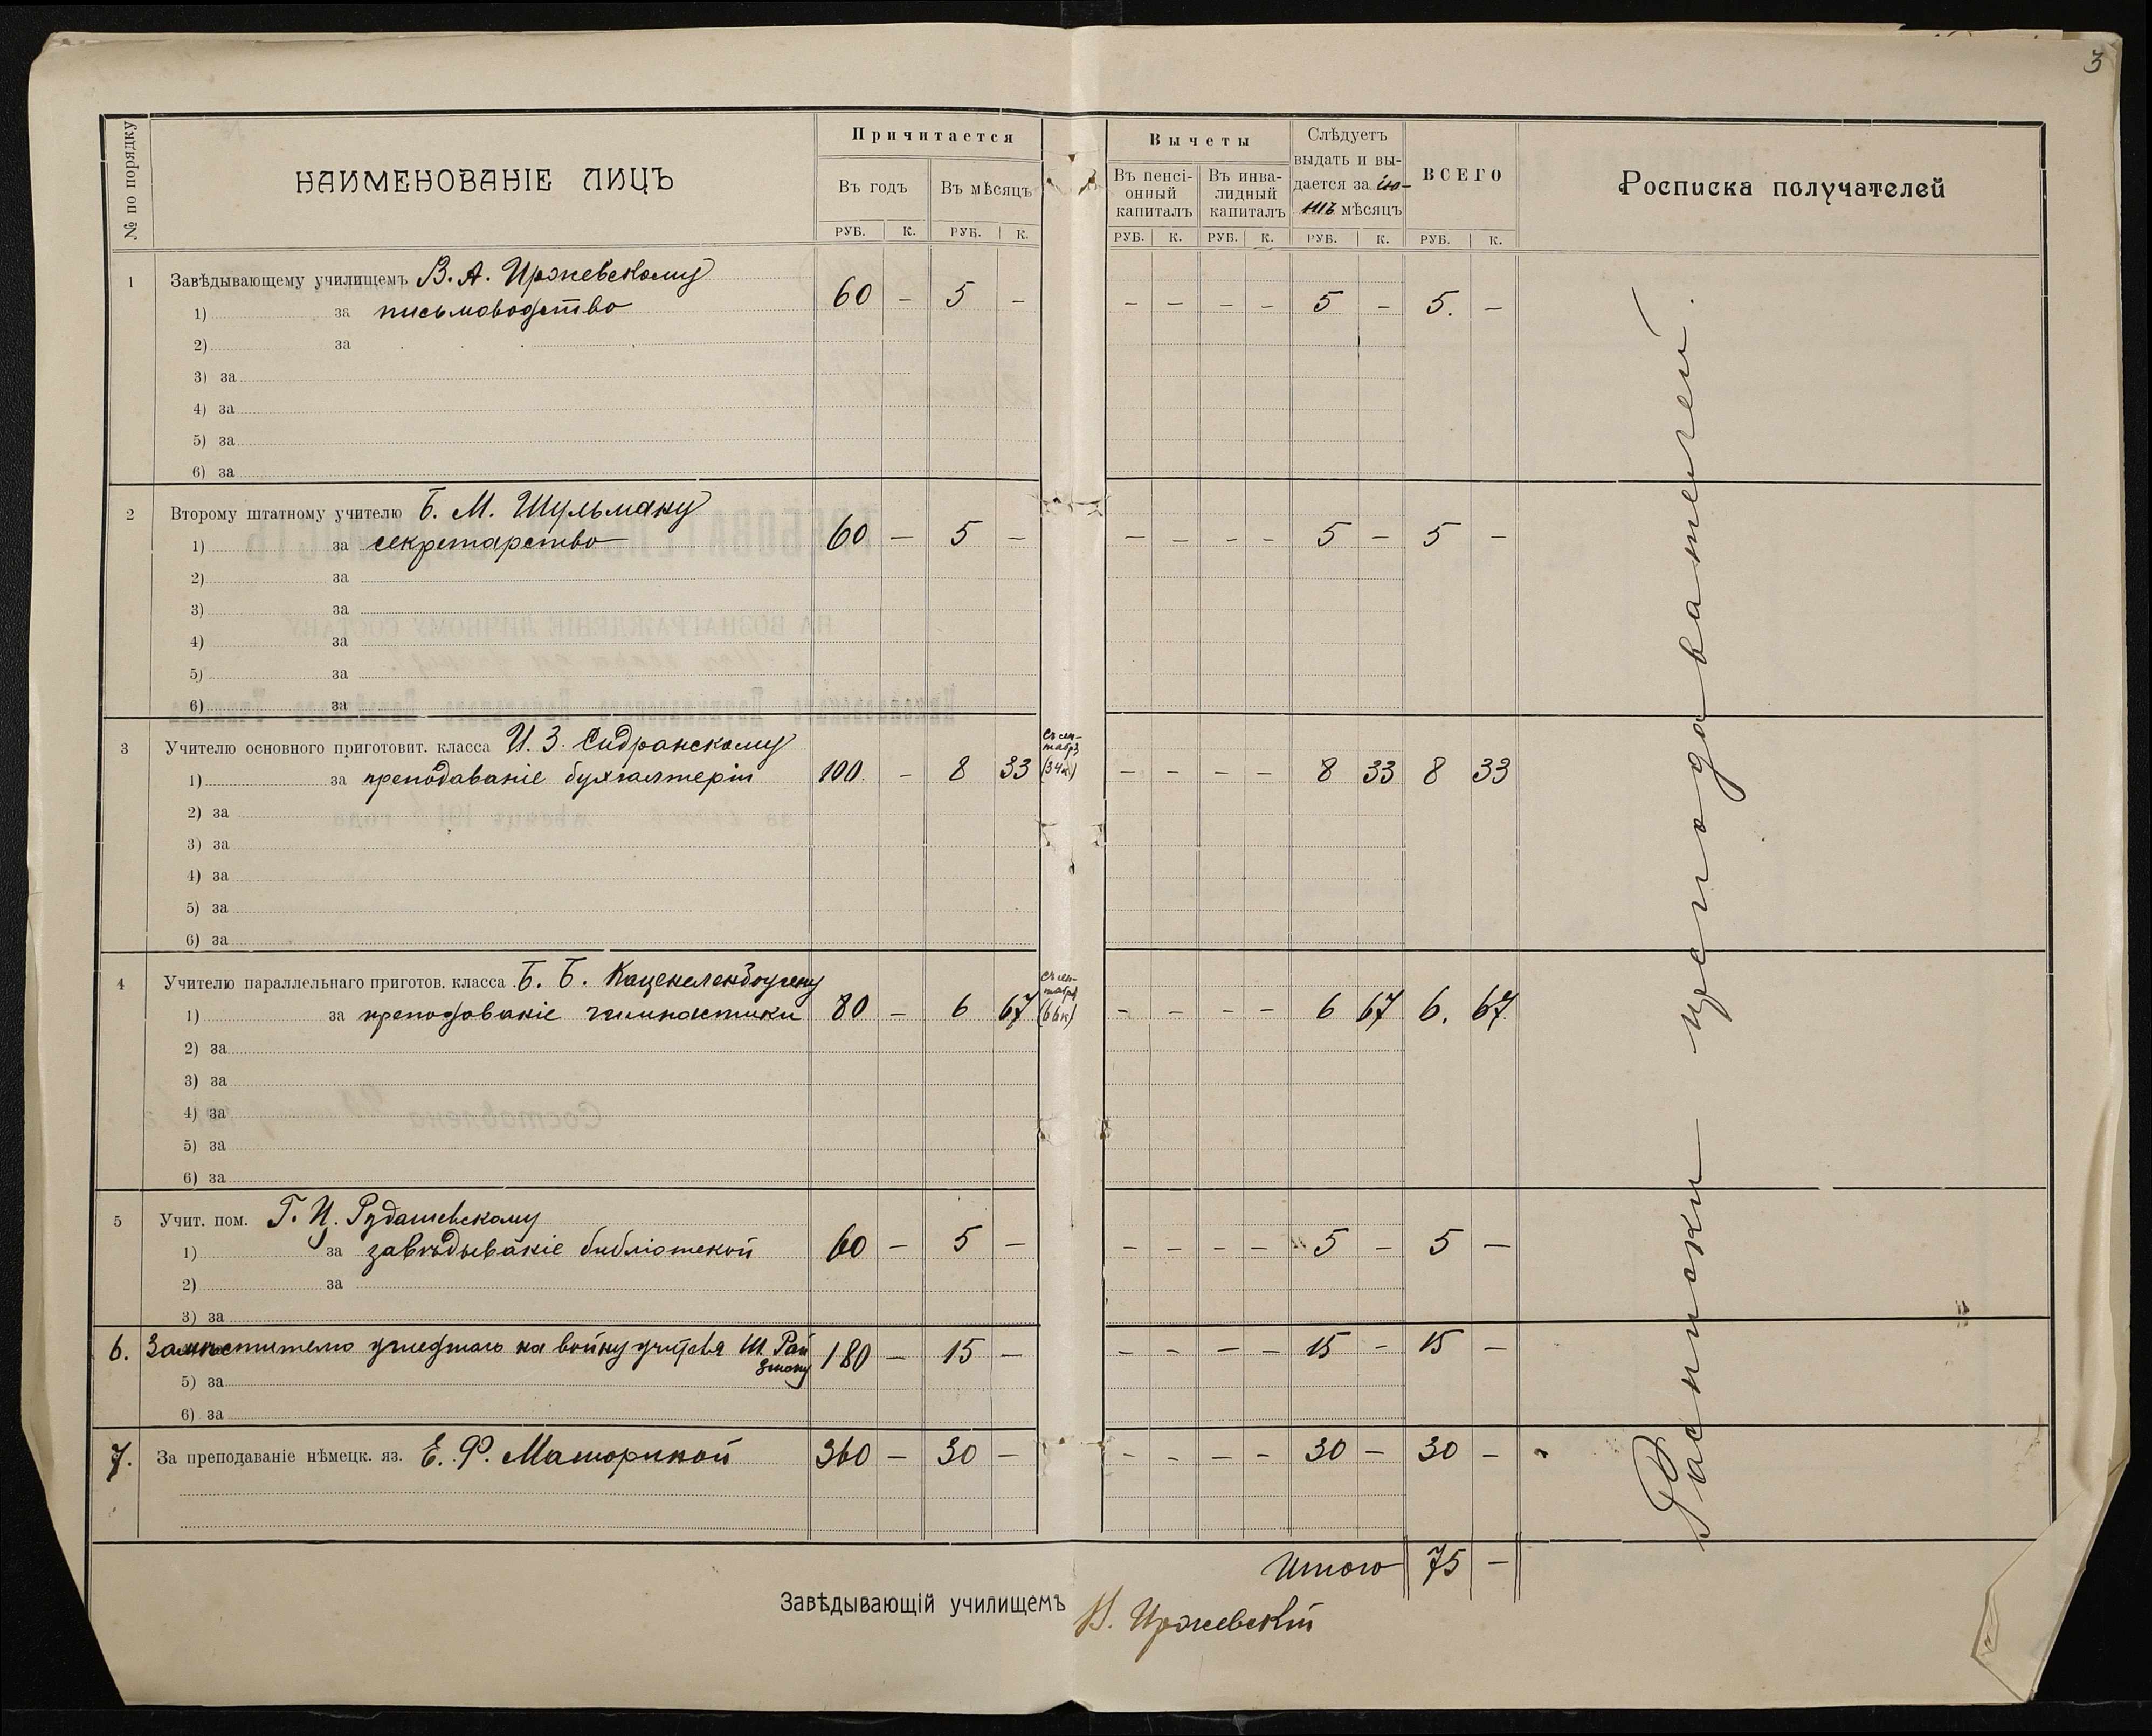 3
№ по порядку
НАИМЕНОВАНІЕ ЛИЦЪ
Причитается
Въ годъ
Въ мѣсяцъ
РУБ. К. РУБ. К.
Вычеты
Въ пенсі-
онный
капиталъ
Въ инва-
лидный
капиталъ
Слѣдуетъ
выдать и вы-
дается за ію-
нь мѣсяцъ
ВСЕГО
РУБ. К. РУБ. К. РУБ. К. РУБ. К.
Росписка получателей
1 Завѣдывающему училищемъ В. А. Иржевскому
1) за письмоводство 60 - 5 - - - - - 5 - 5. -
2) за
3) за
4) за
5) за
6) за
2 Второму штатному учителю Б. М. Шульману
1) за секретарство 60 - 5 - - - - - 5 - 5 -
2) за
3) за
4) за
5) за
6) за
3 Учителю основного приготовит. класса И. З. Сидранскому
1) за преподаваніе бухгалтеріи 100 - 8 33 (34к.) - - - - 8 33 8 33
2) за
3) за
4) за
5) за
6) за
4 Учителю параллельнаго приготов. класса Б. Б. Каценеленбогену
1) за преподованіе гимнастики 80 - 6 67 (66к) - - - - 6 67 6. 67
2) за
3) за
4) за
5) за
6) за
5 Учит. пом. Г. И. Рудашевскому
1) за завѣдываніе библіотекой 60 - 5 - - - - - 5 - 5 -
2) за
3) за
6. Замѣстителю ушедшаго на войну учителя Ш. Рай
зману 180 - 15 - - - - - 15 - 15 -
5) за
6) за
7. За преподаваніе нѣмецк. яз. Е. Р. Маториной 360 - 30 - - - - - 30 - 30 -
Расписки преподавателей.
Итого 75 -
Завѣдывающій училищемъ В. Иржевскій